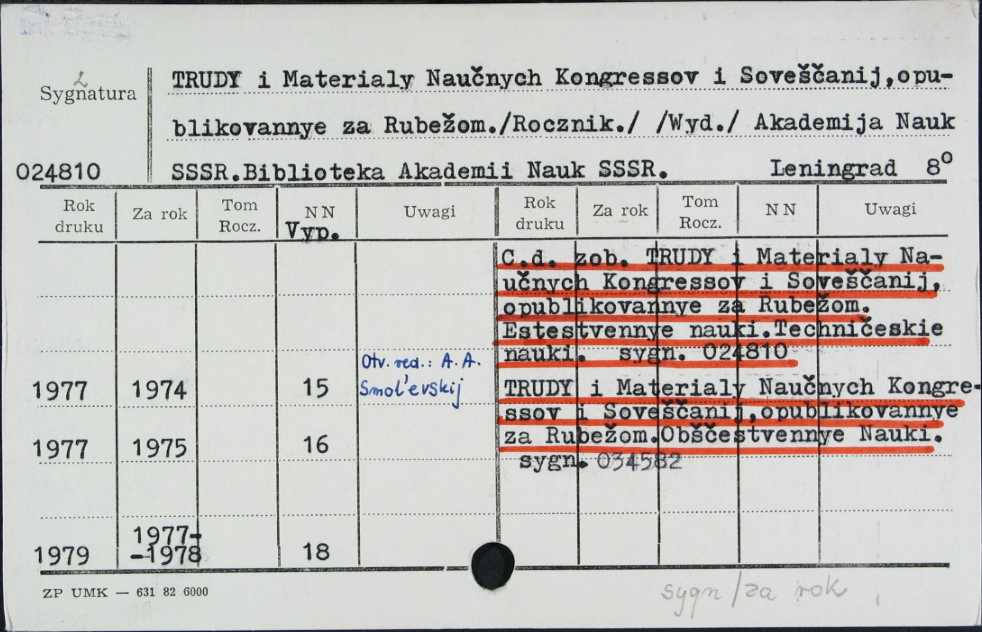 L
Sygnatura
TRUDY i Materialy Naučnych Kongressov i Soveščanij,opu-
blikovannye za Rubežom./Rocznik./ /Wyd./ Akademija Nauk
024810
SSSR.Biblioteka Akademii Nauk SSSR. Leningrad 8°
Rok druku Za rok Tom Rocz. NN Vyp. Uwagi Rok druku Za rok Tom Rocz. NN Uwagi
C.d. zob. TRUDY i Materialy Na-
učnych Kongressov i Soveščanij,
opublikovannye za Rubežom.
Estestvennye nauki.Techničeskie
nauki. sygn. 024810
1977 1974 15 Otv. red.: A. A.
Smol'evskij
TRUDY i Materialy Naučnych Kongre-
ssov i Soveščanij,opublikovannye
1977 1975 16
za Rubežom.Obščestvennye Nauki.
sygn. 034582
1979 1977-
-1978 18
ZP UMK — 631 82 6000
sygn/za rok